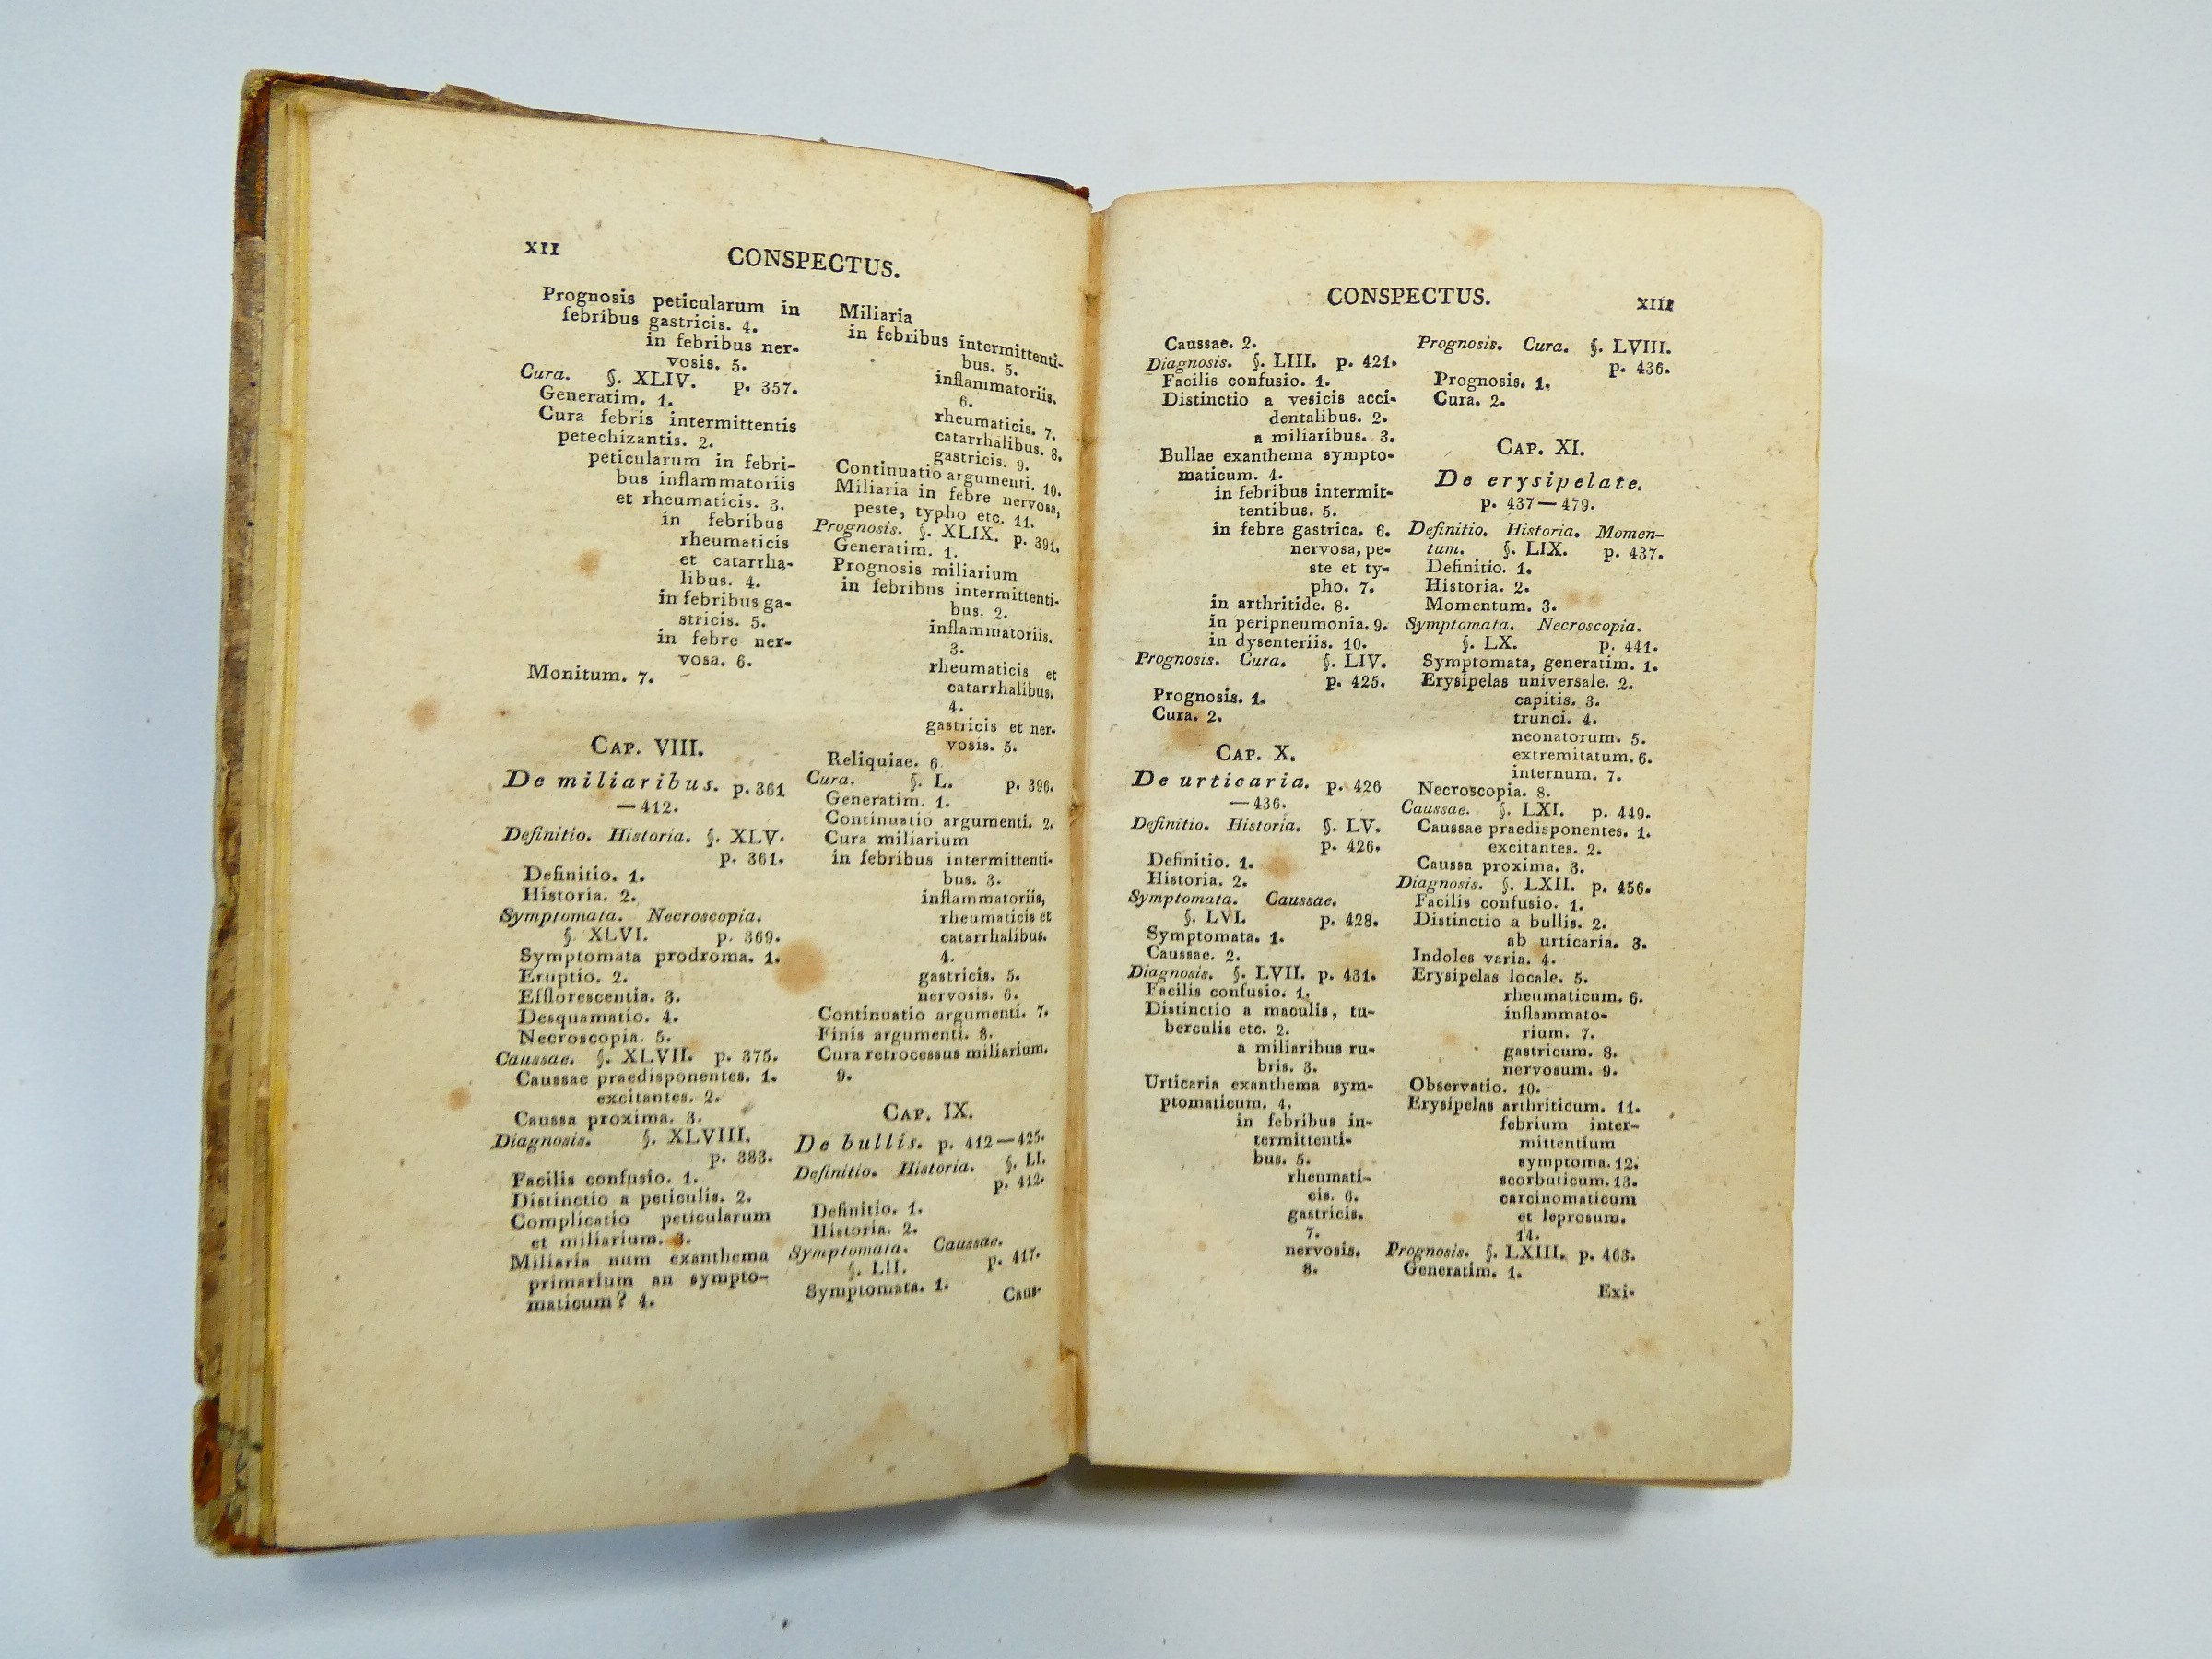 XII
CONSPECTUS.
Prognosis peticularum in
febribus gastricis. 4.
in febribus ner-
vosis. 5.
Cura. §. XLIV. p. 357.
Generatim. 1.
Cura febris intermittentis
petechizantis. 2.
peticularum in febri-
bus inflammatoriis
et rheumaticis. 3.
in febribus
rheumaticis
et catarrha-
libus. 4.
in febribus ga-
stricis. 5.
in febre ner-
vosa. 6.
Monitum. 7.
CAP. VIII.
De miliaribus. p. 361
—412.
Definitio. Historia. §. XLV.
p. 361.
Definitio. 1.
Historia. 2.
Symptomata. Necroscopia.
§. XLVI. p. 369.
Symptomata prodroma. 1.
Eruptio. 2.
Efflorescentia. 3.
Desquamatio. 4.
Necroscopia. 5.
Caussae. §. XLVII. p. 375.
Caussae praedisponentes. 1.
excitantes. 2.
Caussa proxima. 3.
Diagnosis. §. XLVIII.
p. 383.
Facilis confusio. 1.
Distinctio a peticulis. 2.
Complicatio peticularum
et miliarium. 3.
Miliaria num exanthema
primarium an sympto-
maticum? 4.
Miliaria
in febribus intermittenti-
bus. 5.
inflammatoriis.
6.
rheumaticis. 7.
catarrhalibus. 8.
gastricis. 9.
Continuatio argumenti. 10.
Miliaria in febre nervosa,
peste, typho etc. 11.
Prognosis. §. XLIX. p. 391.
Generatim. 1.
Prognosis miliarium
in febribus intermittenti-
bus. 2.
inflammatoriis.
3.
rheumaticis et
catarrhalibus.
4.
gastricis et ner-
vosis. 5.
Reliquiae. 6.
Cura. §. L. p. 396.
Generatim. 1.
Continuatio argumenti. 2.
Cura miliarium
in febribus intermittenti-
bus. 3.
inflammatoriis,
rheumaticis et
catarrhalibus.
4.
gastricis. 5.
nervosis. 6.
Continuatio argumenti. 7.
Finis argumenti. 8.
Cura retrocessus miliarium.
9.
CAP. IX.
De bullis. p. 412—425.
Definitio. Historia. §. LI.
p. 412.
Definitio. 1.
Historia. 2.
Symptomata. Caussae.
§. LII. p. 417.
Symptomata. 1.
Caus-
CONSPECTUS.
XIII
Caussae. 2.
Diagnosis. §. LIII. p. 421.
Facilis confusio. 1.
Distinctio a vesicis acci-
dentalibus. 2.
a miliaribus. 3.
Bullae exanthema sympto-
maticum. 4.
in febribus intermit-
tentibus. 5.
in febre gastrica. 6.
nervosa, pe-
ste et ty-
pho. 7.
in arthritide. 8.
in peripneumonia. 9.
in dysenteriis. 10.
Prognosis. Cura. §. LIV.
p. 425.
Prognosis. 1.
Cura. 2.
CAP. X.
De urticaria. p. 426
—436.
Definitio. Historia. §. LV.
p. 426.
Definitio. 1.
Historia. 2.
Symptomata. Caussae.
§. LVI. p. 428.
Symptomata. 1.
Caussae. 2.
Diagnosis. §. LVII. p. 431.
Facilis confusio. 1.
Distinctio a maculis, tu-
berculis etc. 2.
a miliaribus ru-
bris. 3.
Urticaria exanthema sym-
ptomaticum. 4.
in febribus in-
termittenti-
bus. 5.
rheumati-
cis. 6.
gastricis.
7.
nervosis.
8.
Prognosis. Cura. §. LVIII.
p. 436.
Prognosis. 1.
Cura. 2.
CAP. XI.
De erysipelate.
p. 437—479.
Definitio. Historia. Momen-
tum. §. LIX. p. 437.
Definitio. 1.
Historia. 2.
Momentum. 3.
Symptomata. Necroscopia.
§. LX. p. 441.
Symptomata, generatim. 1.
Erysipelas universale. 2.
capitis. 3.
trunci. 4.
neonatorum. 5.
extremitatum. 6.
internum. 7.
Necroscopia. 8.
Caussae. §. LXI. p. 449.
Caussae praedisponentes. 1.
excitantes. 2.
Caussa proxima. 3.
Diagnosis. §. LXII. p. 456.
Facilis confusio. 1.
Distinctio a bullis. 2.
ab urticaria. 3.
Indoles varia. 4.
Erysipelas locale. 5.
rheumaticum. 6.
inflammato-
rium. 7.
gastricum. 8.
nervosum. 9.
Observatio. 10.
Erysipelas arthriticum. 11.
febrium inter-
mittentium
symptoma. 12.
scorbuticum. 13.
carcinomaticum
et leprosum.
14.
Prognosis. §. LXIII. p. 463.
Generatim. 1.
Exi-